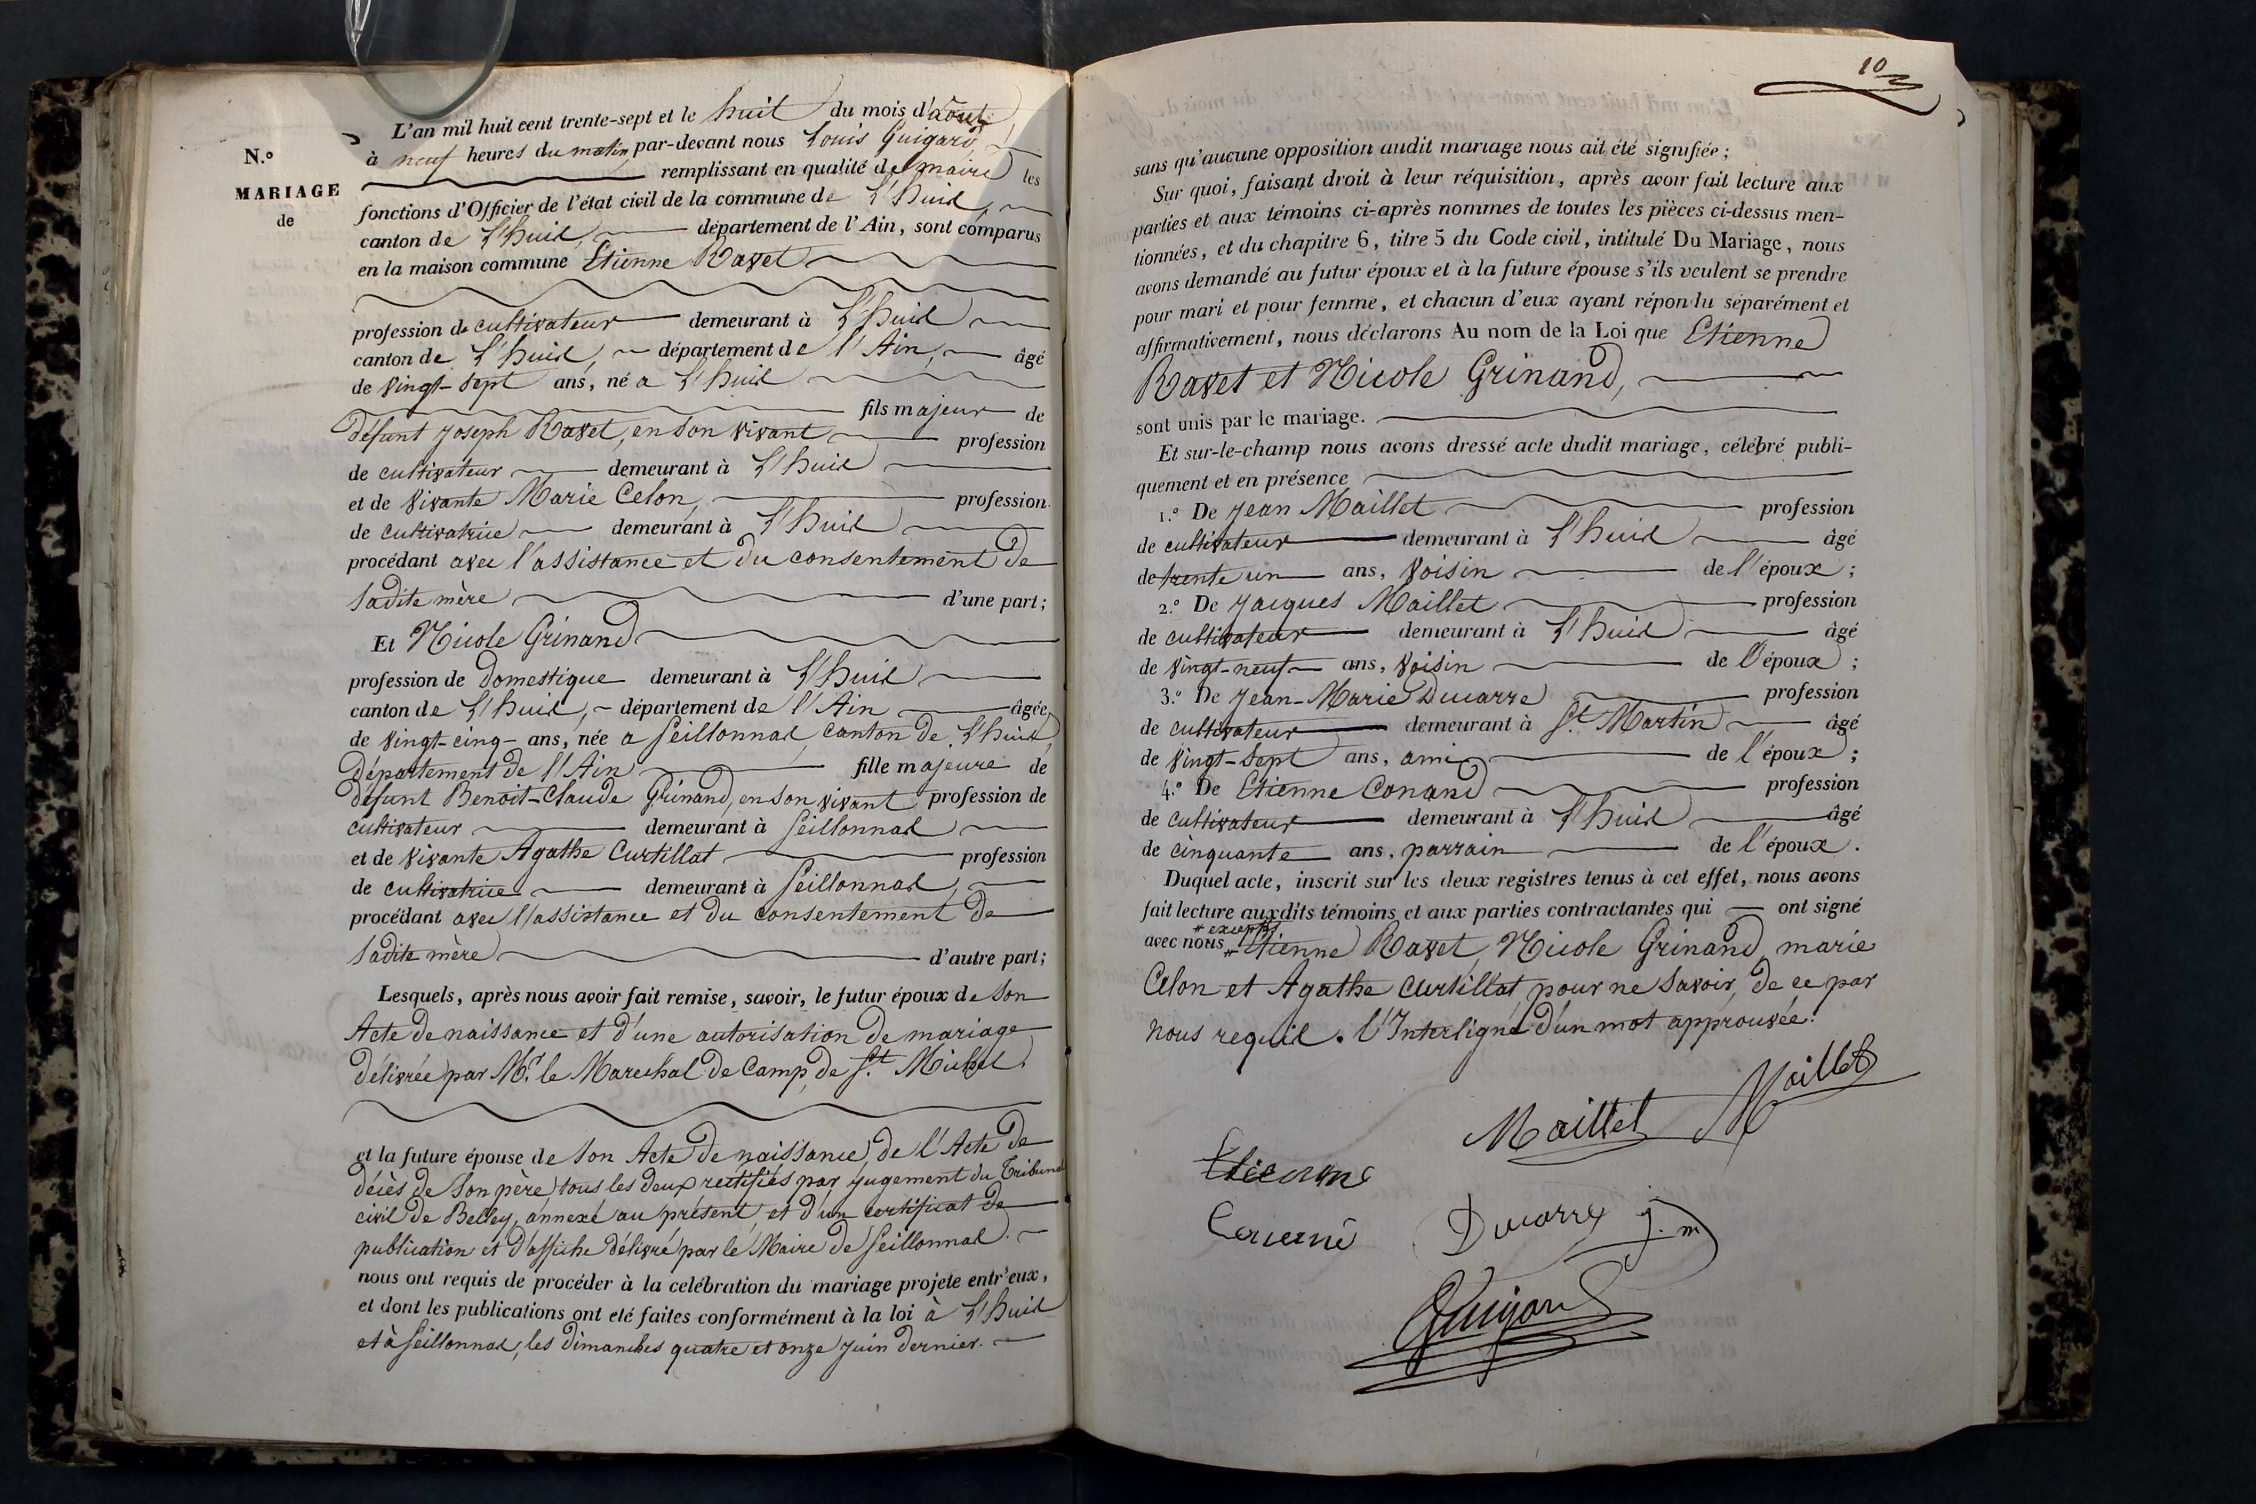 N.o
MARIAGE
de
L'an mil huit cent trente-sept et le huit du mois d'août
à neuf heures du matin par-devant nous Louis Guigard,
remplissant en qualité de maire les
fonctions d'Officier de l'état civil de la commune de L'huis,
canton de L'huis, département de l'Ain, sont comparus
en la maison commune Etienne Ravet
profession de cultivateur demeurant à L'huis
canton de L'huis, département de l'Ain, âgé
de vingt-sept ans, né a L'huis
fils majeur de
défunt Joseph Ravet, en son vivant profession
de cultivateur demeurant à L'huis
et de vivante Marie Celon, profession
de cultivatrice demeurant à L'huis
procédant avec l'assistance et du consentement de
sadite mère d'une part;
Et Nicole Grinand
profession de domestique demeurant à L'huis
canton de L'huis, département de l'Ain âgée
de vingt-cinq ans, née a Seillonnas, canton de L'huis,
département de l'Ain fille majeure de
défunt Benoit-Claude Grinand, en son vivant profession de
cultivateur demeurant à Seillonnas
et de vivante Agathe Curtillat profession
de cultivatrice demeurant à Seillonnas,
procédant avec l'assistance et du consentement de
sadite mère d'autre part;
Lesquels, après nous avoir fait remise, savoir, le futur époux de son
Acte de naissance et d'une autorisation de mariage
délivrée par Mr. le Marechal de Camp, de St. Michel.
et la future épouse de son Acte de naissance, de l'Acte de
décès de son père, tous les deux rectifiés par jugement du Tribunal
civil de Belley, annexé au présent, et d'un certificat de
publication et d'affiche délivré par le Maire de Seillonnas.
nous ont requis de procéder à la celébration du mariage projeté entr'eux,
et dont les publications ont eté faites conformément à la loi à L'huis
et à Seillonnas, les dimanches quatre et onze juin dernier.
10
sans qu'aucune opposition audit mariage nous ait été signifiée;
Sur quoi, faisant droit à leur réquisition, après avoir fait lecture aux
parties et aux témoins ci-après nommes de toutes les pièces ci-dessus men-
tionnées, et du chapitre 6, titre 5 du Code civil, intitulé Du Mariage, nous
avons demandé au futur époux et à la future épouse s'ils veulent se prendre
pour mari et pour femme, et chacun d'eux ayant répondu séparément et
affirmativement, nous déclarons Au nom de la Loi que Etienne
Ravet et Nicole Grinand,
sont unis par le mariage.
Et sur-le-champ nous avons dressé acte dudit mariage, célébré publi-
quement et en présence
1.o De Jean Maillet profession
de cultivateur demeurant à L'huis âgé
de trente un ans, voisin de l'époux;
2.o De Jacques Maillet profession
de cultivateur demeurant à L'huis âgé
de vingt-neuf ans, voisin de l'époux;
3.o De Jean-Marie Ducarre profession
de cultivateur demeurant à St. Martin âgé
de vingt-sept ans, ami de l'époux;
4.o De Etienne Conand profession
de cultivateur demeurant à L'huis âgé
de cinquante ans, parrain de l'époux.
Duquel acte, inscrit sur les deux registres tenus à cet effet, nous avons
fait lecture auxdits témoins et aux parties contractantes qui ont signé
# excepté
avec nous # Etienne Ravet, Nicole Grinand, marie
Celon et Agathe Curtillat, pour ne savoir, de ce par
nous requis. l'Interligne d'un mot approuvée.
Maillet
Maillet
Etienne
Ducarre j. m
Guigard